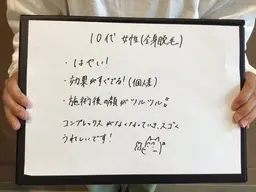 10代 女性(全身脱毛)
・はやい!
・効果がすぐでる!(個人差)
・施術後の顔がツルツル。
コンプレックスがなくなっていき、スゴく
うれしいです!